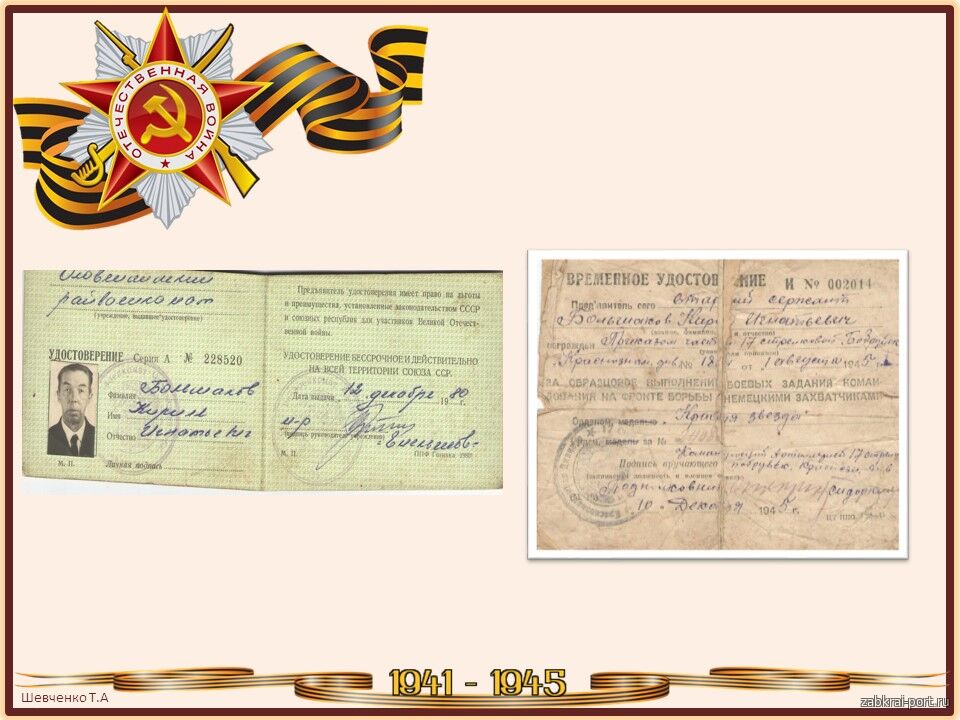 ОТЕЧЕСТВЕННАЯ ВОЙНА
Оловяннинский
райвоенкомат
(учреждение, выдавшее удостоверение)
УДОСТОВЕРЕНИЕ Серия А № 228520
Фамилия Большаков
Имя Кирилл
Отчество Игнатьевич
М. П. Личная подпись
Предъявитель удостоверения имеет право на льготы
и преимущества, установленные законодательством СССР
и союзных республик для участников Великой Отечест-
венной войны.
УДОСТОВЕРЕНИЕ БЕССРОЧНОЕ И ДЕЙСТВИТЕЛЬНО
НА ВСЕЙ ТЕРРИТОРИИ СОЮЗА ССР.
Дата выдачи 12 декабря 1980 г.
м-р
(подпись руководителя учреждения)
М. П. ППФ Гознака 1980
ВРЕМЕННОЕ УДОСТОВ ЕНИЕ И № 002014
Пред'явитель сего старший сержант
Большаков Кир Игнатьевич
награжден Приказом част 17 стрелковой Бобруйск
Краснознам. див. № 18 от 1 августа 1945
ЗА ОБРАЗЦОВОЕ ВЫПОЛНЕНИ БОЕВЫХ ЗАДАНИЯ КОМАН-
ДОВАНИЯ НА ФРОНТЕ БОРЬБЫ НЕМЕЦКИМИ ЗАХВАТЧИКАМИ
Орденом, медалью Красная звезда
медаль за №
Коман 17 стрелк
Подпись вручающего бобруйск. Краснозн. див
Подполковник Сидор
10 Декабря 1945 г.
1941 - 1945
Шевченко Т.А
zabkrai-port.ru